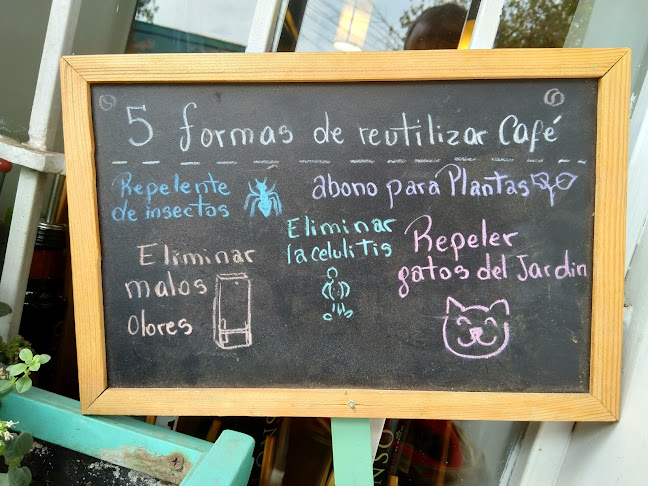 5 formas de reutilizar Café
Repelente
de insectos
abono para Plantas
Eliminar
la celulitis
Eliminar
malos
olores
Repeler
gatos del Jardin